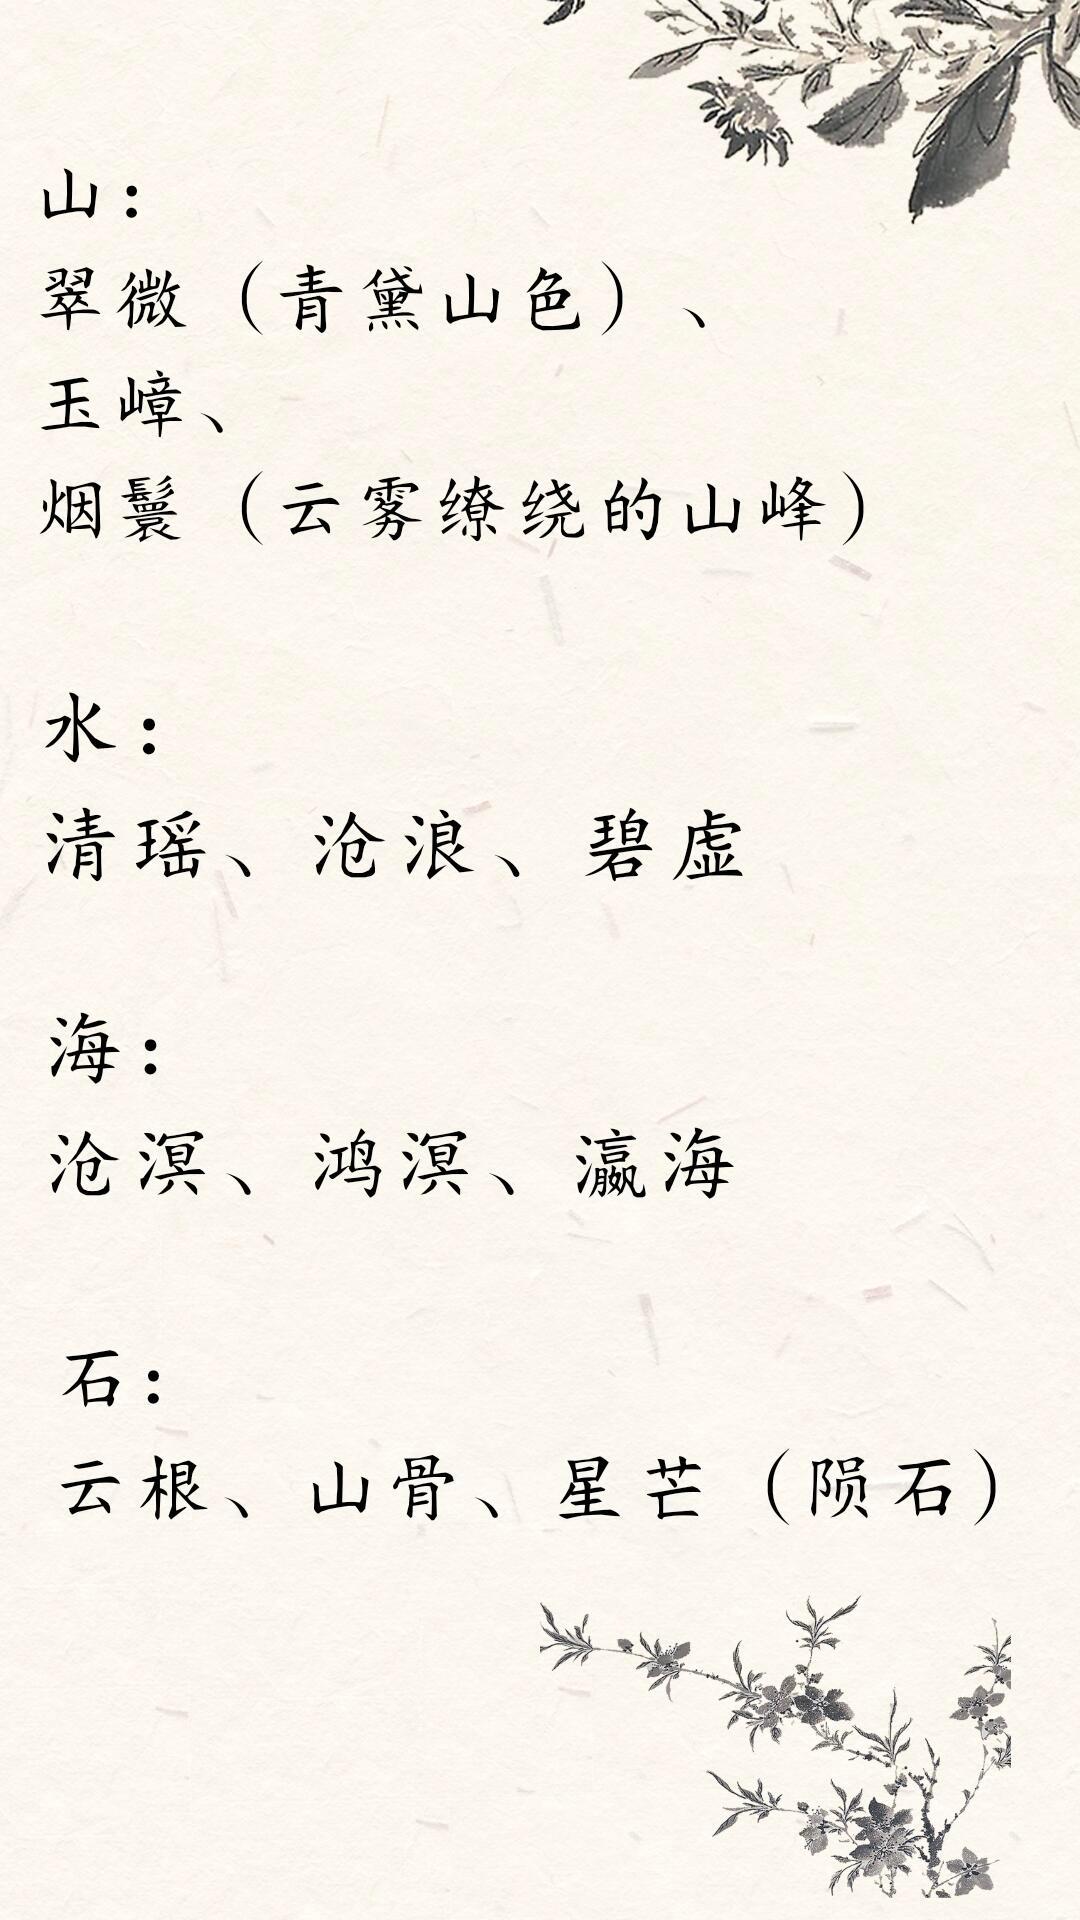 山：
翠微（青黛山色）、
玉嶂、
烟鬟（云雾缭绕的山峰）
水：
清瑶、沧浪、碧虚
海：
沧溟、鸿溟、瀛海
石：
云根、山骨、星芒（陨石）